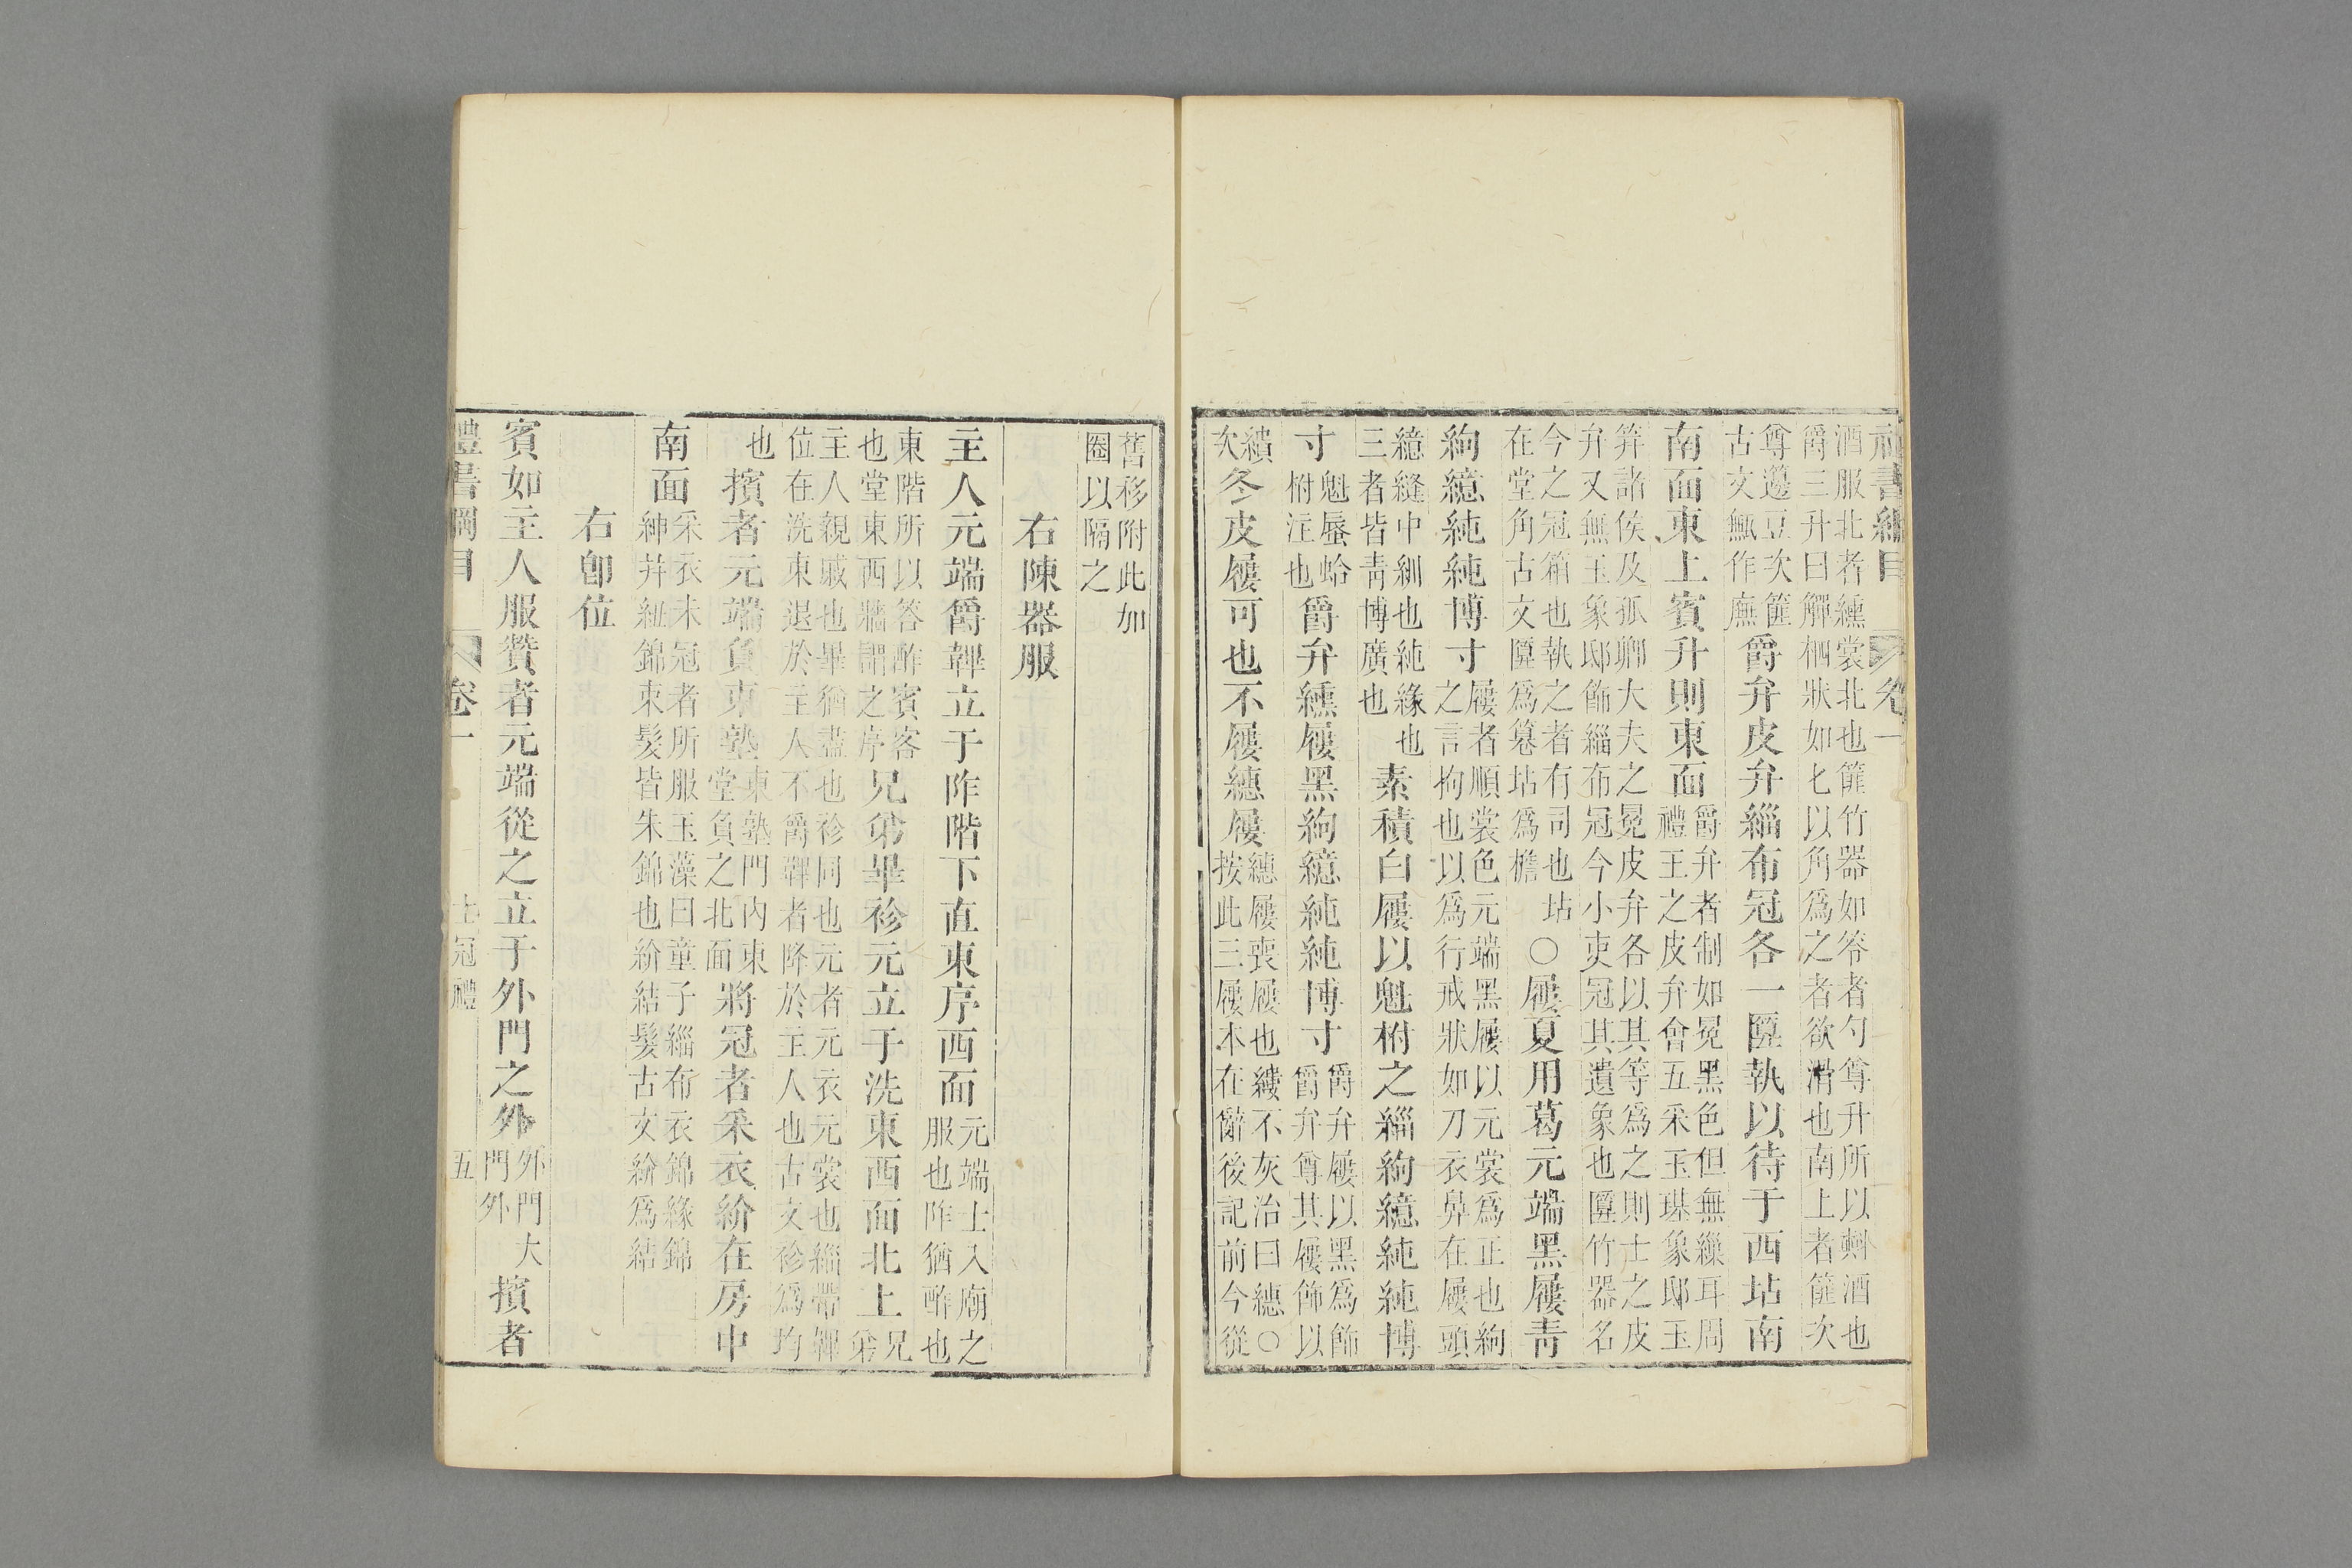 禮書綱目 卷一
酒服北者纁裳北也篚竹器如笭者勺尊升所以㪺酒也
爵三升曰觶柶狀如匕以角爲之者欲滑也南上者篚次
尊籩豆次篚古文甒作廡爵弁皮弁緇布冠各一匴執以待于西坫南
南面東上賓升則東面爵弁者制如冕黑色但無繅耳周禮王之皮弁會五采玉璂象邸玉
笄諸侯及孤卿大夫之冕皮弁各以其等爲之則士之皮
弁又無玉象邸飾緇布冠今小吏冠其遺象也匴竹器名
今之冠箱也執之者有司也坫在堂角古文匴爲篹坫爲檐○屨夏用葛元端黑屨青
絇繶純純博寸屨者順裳色元端黑屨以元裳爲正也絇之言拘也以爲行戒狀如刀衣鼻在屨頭
繶縫中紃也純緣也三者皆青博廣也素積白屨以魁柎之緇絇繶純純博
寸魁蜃蛤柎注也爵弁纁屨黑絇繶純純博寸爵弁屨以黑爲飾爵弁尊其屨飾以
繢次冬皮屨可也不屨繐屨繐屨喪屨也縷不灰治曰繐○按此三屨本在辭後記前今從
舊移附此加圈以隔之
右陳器服
主人元端爵韠立于阼階下直東序西面元端士入廟之服也阼猶酢也
東階所以答酢賓客也堂東西牆謂之序兄弟畢袗元立于洗東西面北上兄弟
主人親戚也畢猶盡也袗同也元者元衣元裳也緇帶韠
位在洗東退於主人不爵韠者降於主人也古文袗爲均
也擯者元端負東塾東塾門內東堂負之北面將冠者采衣紒在房中
南面采衣未冠者所服玉藻曰童子緇布衣錦緣錦紳并紐錦束髮皆朱錦也紒結髮古文紒爲結
右卽位
賓如主人服贊者元端從之立于外門之外外門大門外擯者
禮書綱目 卷一 士冠禮 五